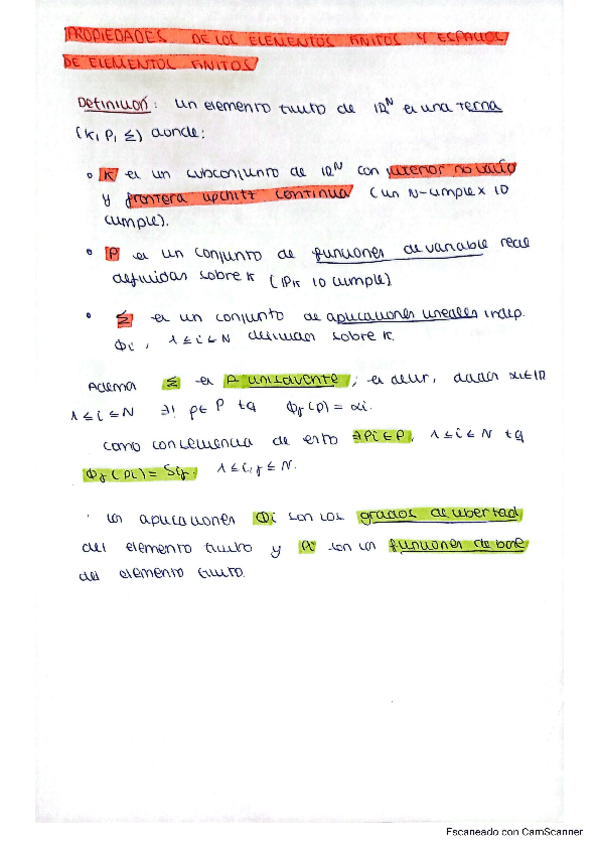 PROPIEDADES DE LOS ELEMENTOS FINITOS Y ESPACIOS
DE ELEMENTOS FINITOS
Definición: un elemento finito de ℝᴺ es una terna
(K, P, Σ) donde:
• K es un subconjunto de ℝᴺ con interior no vacío
y frontera lipchitz continua (un N-simplex lo
cumple).
• P es un conjunto de funciones de variable real
definidas sobre K (ℙₖ lo cumple)
• Σ es un conjunto de aplicaciones lineales indep.
Φi, 1≤i≤N definidas sobre K.
Además Σ es P unisolvente; es decir, dados αi∈ℝ
1≤i≤N ∃! p∈P tq Φj(p) = αi.
como consecuencia de esto ∃Pi∈P, 1≤i≤N tq
Φj(pi) = δij, 1≤i,j≤N.
Las aplicaciones Φi son los grados de libertad
del elemento finito y son las funciones de base
del elemento finito.
Escaneado con CamScanner